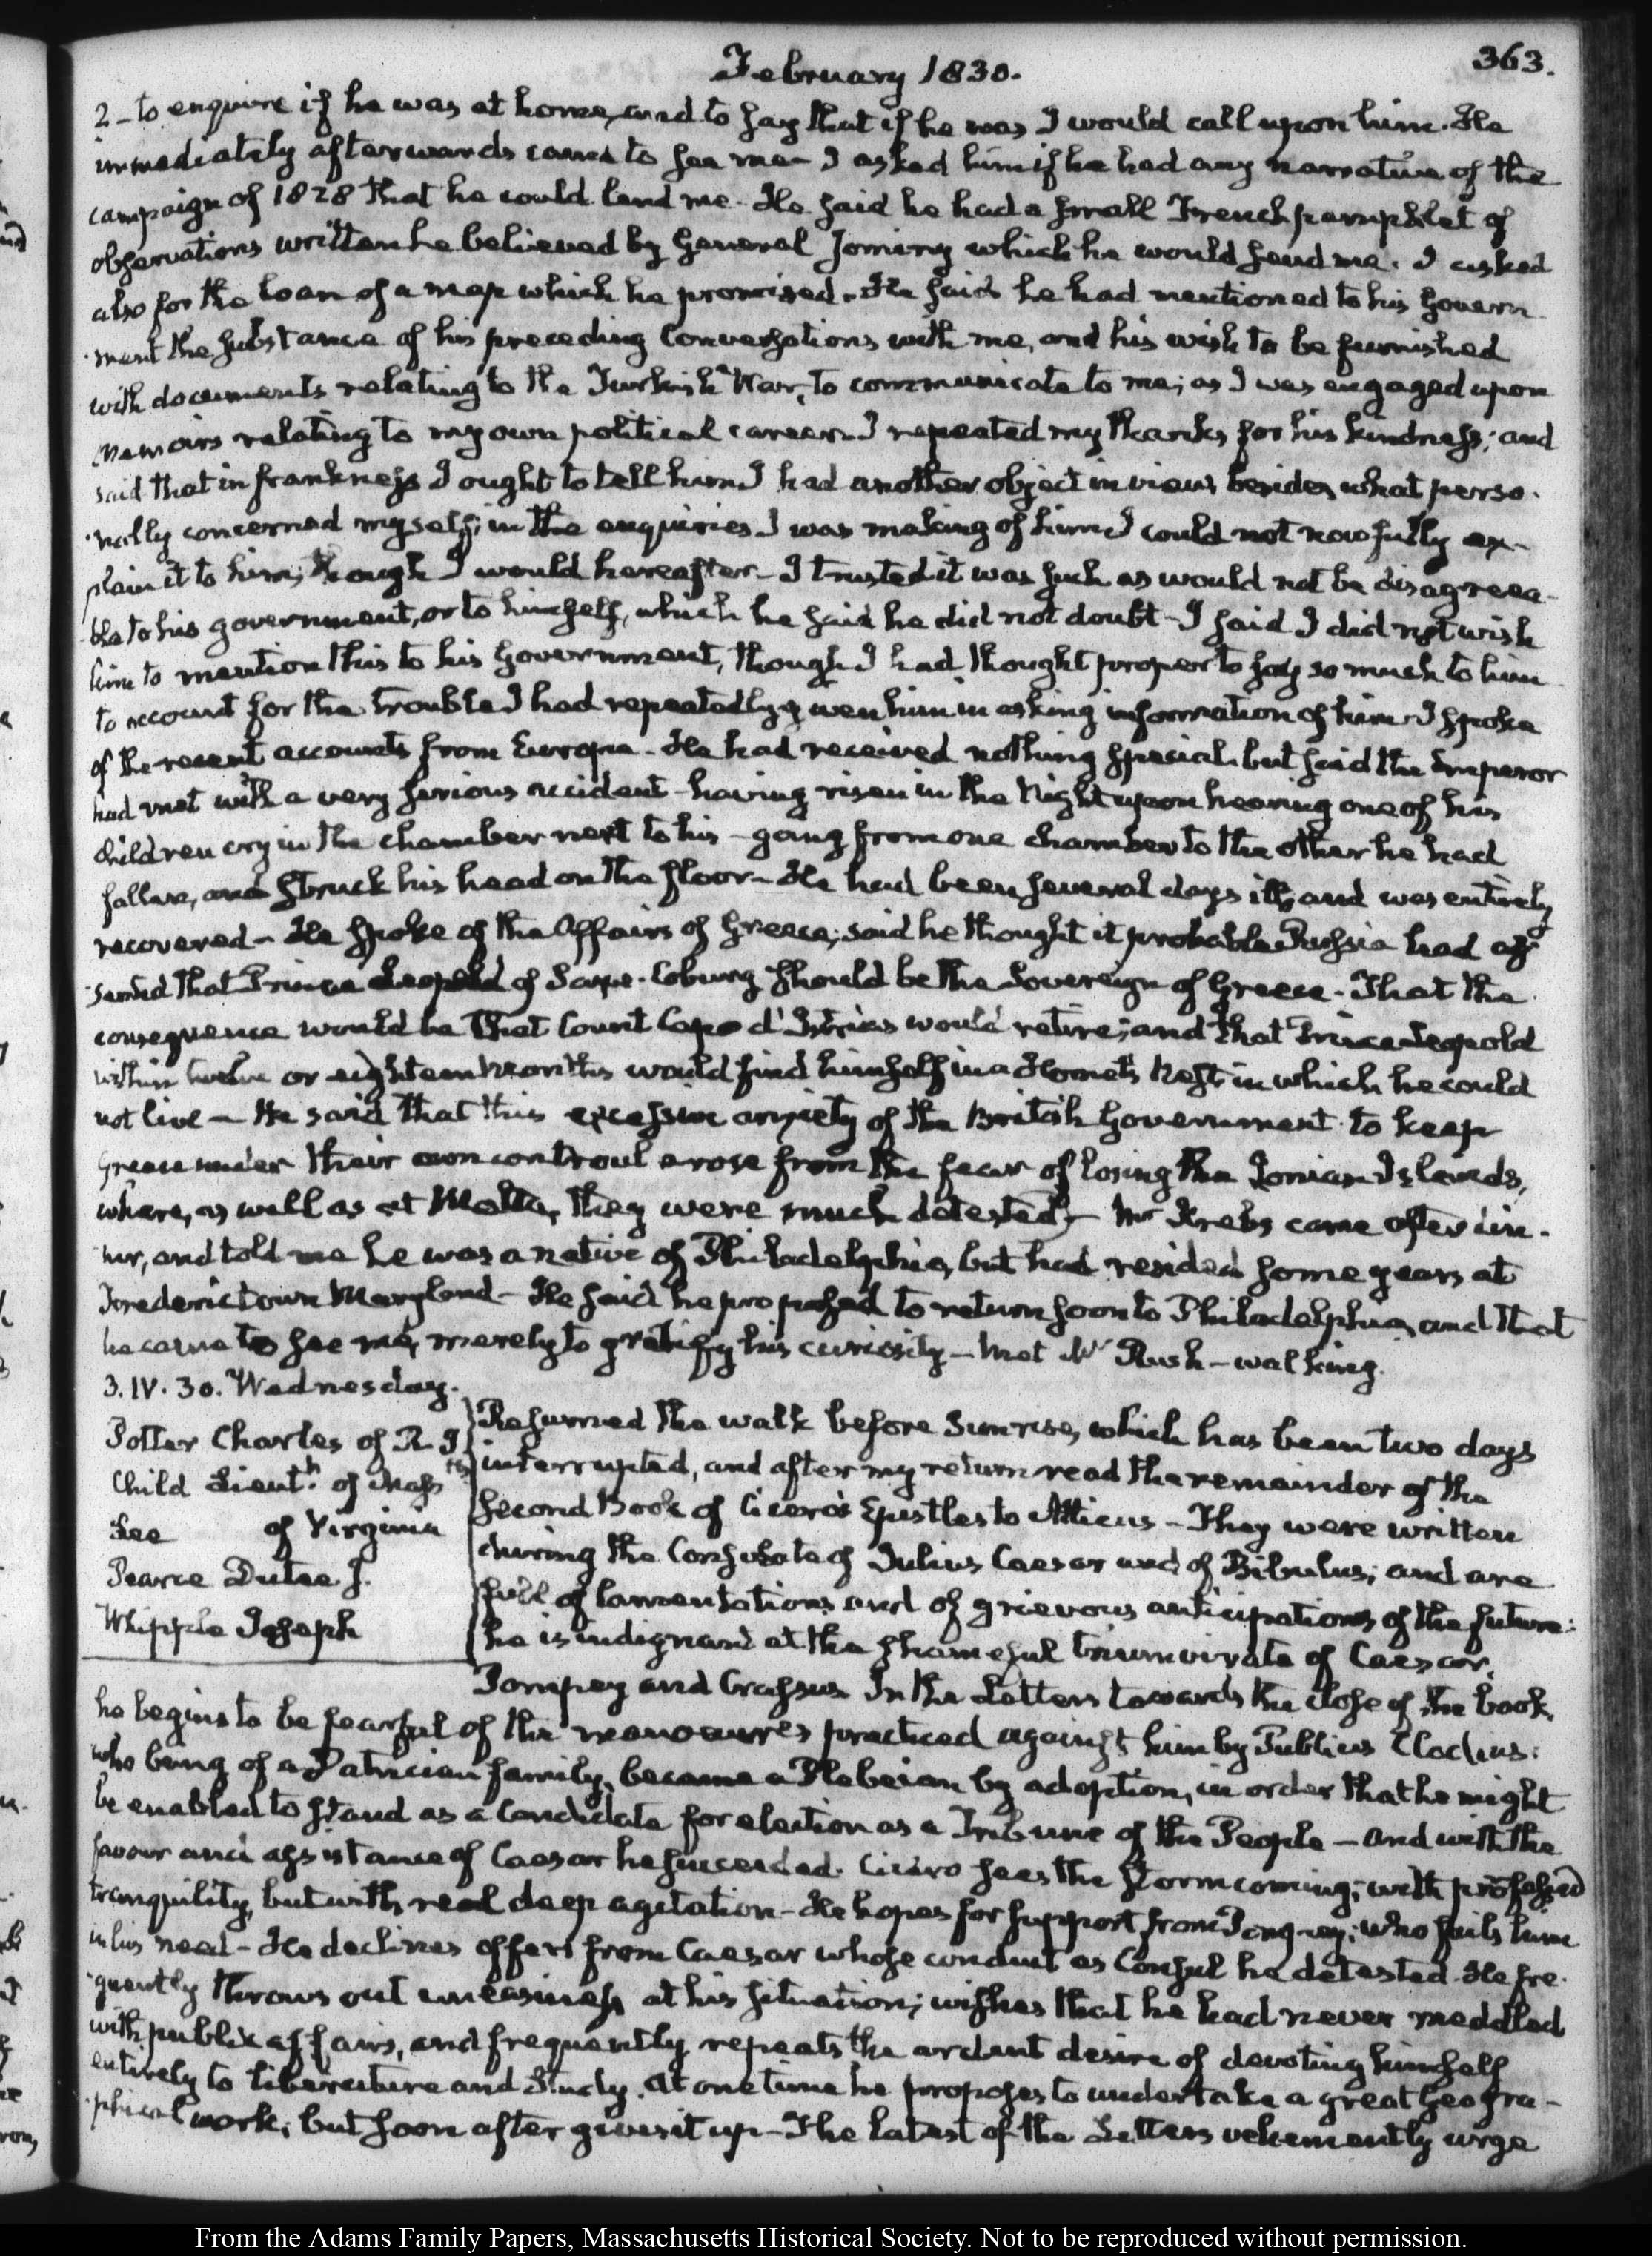 February 1830.
363.
2 - to enquire if he was at home, and to say that if he was I would call upon him. He
immediately afterwards came to see me - I asked him if he had any narrative of the
campaign of 1828 that he could lend me. He said he had a small French pamphlet of
observations written he believed by General Jominy which he would send me. I asked
also for the loan of a map which he promised. He said he had mentioned to his Govern
-ment the substance of his preceding Conversations with me, and his wish to be furnished
with documents relating to the Turkish War, to communicate to me; as I was engaged upon
Memoirs relating to my own political career. I repeated my thanks for his kindness; and
said that in frankness I ought to tell him I had another object in view, besides what perso-
-nally concerned myself, in the enquiries I was making of him. I could not now fully ex-
plain it to him; though I would hereafter - I trusted it was such as would not be disagreea-
-ble to his government, or to himself, which he said he did not doubt - I said I did not wish
him to mention this to his Government, though I had thought proper to say so much to him
to account for the trouble I had repeatedly given him in asking information of him. I spoke
of the recent accounts from Europe. He had received nothing special, but said the Emperor
had met with a very serious accident - having risen in the Night upon hearing one of his
children cry in the chamber next to his - going from one chamber to the other he had
fallen, and struck his head on the floor - He had been several days ill, and was entirely
recovered - He spoke of the Affairs of Greece; said he thought it probable Russia had as
-sented that Prince Leopold of Saxe-Coburg should be the Sovereign of Greece - That the
consequence would be that Count Capo d'Istrias would retire; and that Prince Leopold
within twelve or eighteen months would find himself in a Hornet's Nest, in which he could
not live - He said that this excessive anxiety of the British Government to keep
Greece under their own controul arose from the fear of losing the Ionian Islands,
where, as well as at Malta, they were much detested - Mr Krebs came after din-
ner, and told me he was a native of Philadelphia, but had resided some years at
Frederictown Maryland - He said he proposed to return soon to Philadelphia, and that
he came to see me, merely to gratify his curiosity - Met Mr Rush - walking.
3. IV. 30. Wednesday.
Potter Charles of R. I
Child Lieut. of Mass
Lee of Virginia
Pearce Dutee J.
Whipple Joseph
Resumed the walk before Sunrise, which has been two days
interrupted, and after my return read the remainder of the
second Book of Cicero's Epistles to Atticus - They were written
during the Consulate of Julius Caesar and of Bibulus; and are
full of lamentations and of grievous anticipations of the future:
he is indignant at the shameful triumvirate of Caesar,
Pompey and Crassus In the Letters towards the close of the book,
he begins to be fearful of the manoeuvres practiced against him by Publius Clodius:
who being of a Patrician family, became a Plebeian by adoption, in order that he might
be enabled to stand as a Candidate for election as a Tribune of the People - and with the
favour and assistance of Caesar he succeeded. Cicero sees the storm coming; with professed
tranquility, but with real deep agitation - He hopes for support from Pompey; who fails him
in his need - He declines offers from Caesar whose conduct as Consul he detested. He fre-
-quently throws out uneasiness at his situation; wishes that he had never meddled
with public affairs, and frequently repeats the ardent desire of devoting himself
entirely to literature and study. At one time he proposes to undertake a great Geogra-
-phical work; but soon after gives it up - The latest of the Letters vehemently urge
From the Adams Family Papers, Massachusetts Historical Society. Not to be reproduced without permission.